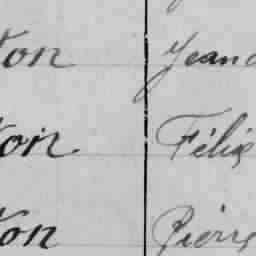 ton Jean
ton Félix
ton Pierre